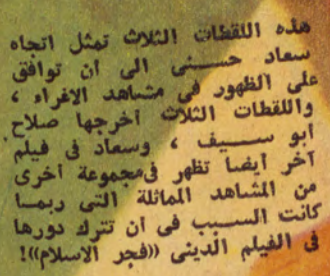 هذه اللقطات الثلاث تمثل اتجاه
سعاد حسنى الى ان توافق
على الظهور فى مشاهد الاغراء ،
واللقطات الثلاث اخرجها صلاح
ابو سيف ، وسعاد فى فيلم
آخر ايضا تظهر فى مجموعة اخرى
من المشاهد المماثلة التى ربما
كانت السبب فى ان تترك دورها
فى الفيلم الدينى ((فجر الاسلام))!